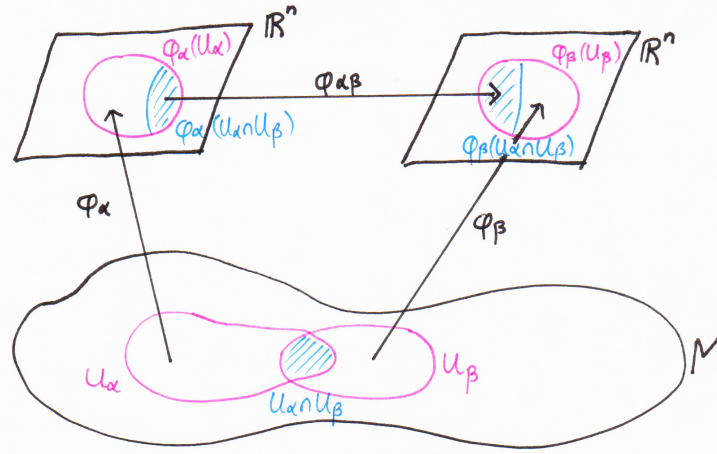 φα(Uα)
ℝⁿ
φαβ
φα(Uα∩Uβ)
φβ(Uβ)
ℝⁿ
φβ(Uα∩Uβ)
φα
φβ
Uα
Uα∩Uβ
Uβ
M